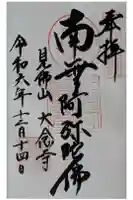 奉拝
南無阿弥陀佛
見佛山 大念寺
令和六年十二月十四日